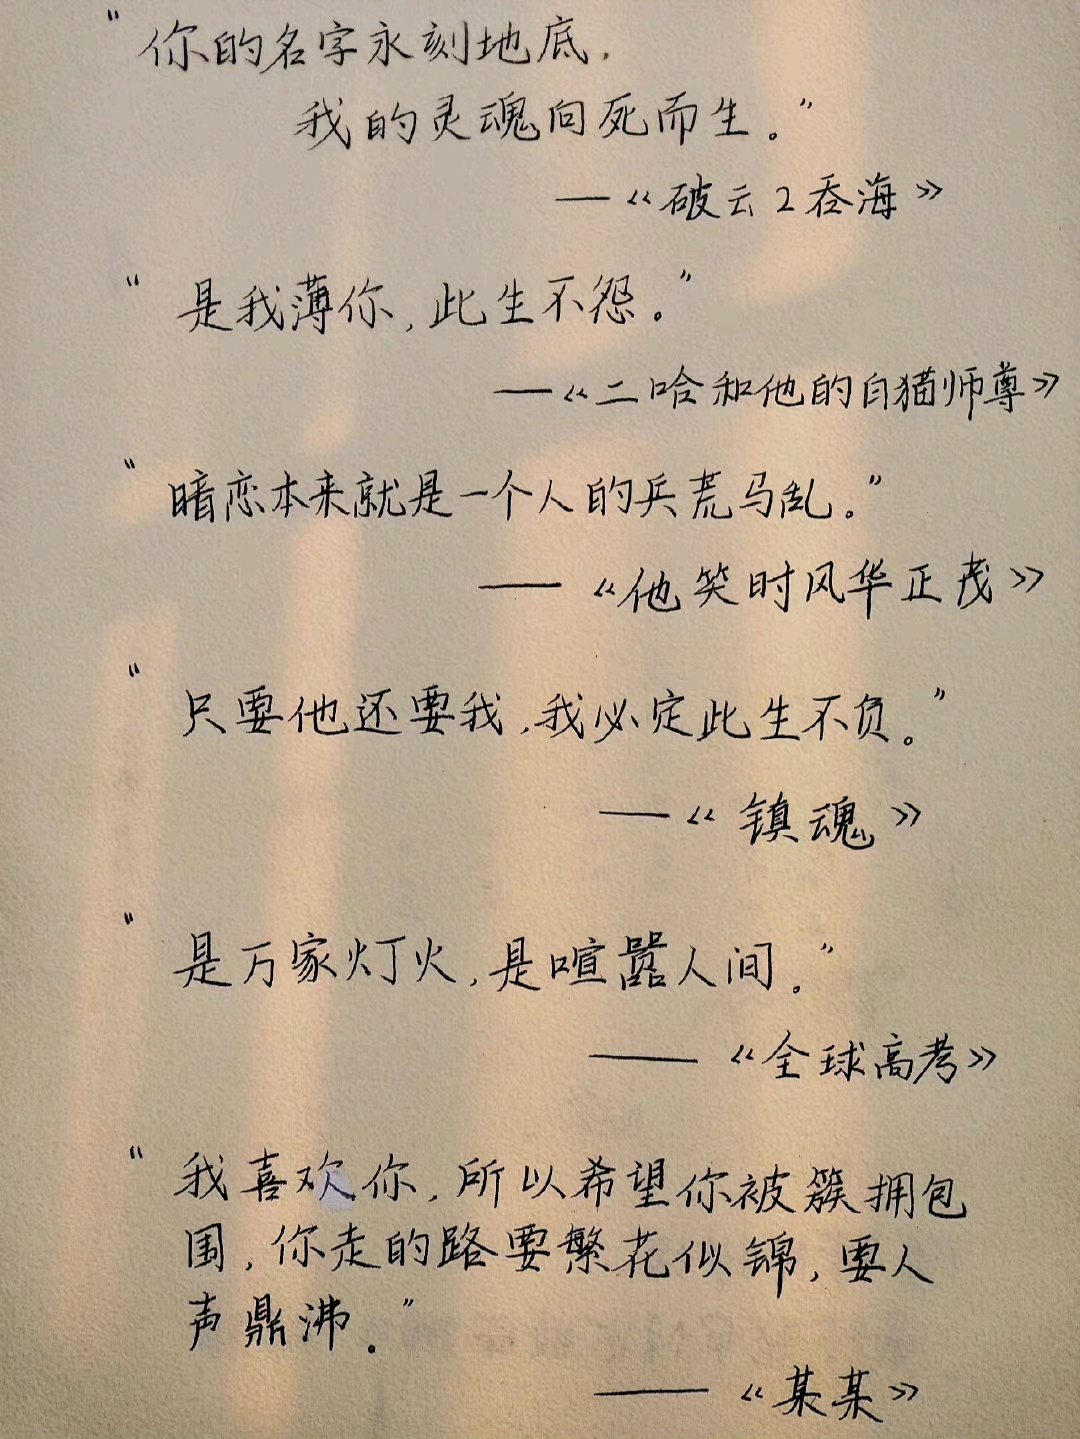 “你的名字永刻地底，
我的灵魂向死而生。”
—《破云2吞海》
“是我薄你，此生不怨。”
—《二哈和他的白猫师尊》
“暗恋本来就是一个人的兵荒马乱。”
——《他笑时风华正茂》
“只要他还要我，我必定此生不负。”
——《镇魂》
“是万家灯火，是喧嚣人间。”
——《全球高考》
“我喜欢你，所以希望你被簇拥包
围，你走的路要繁花似锦，要人
声鼎沸。”
——《某某》